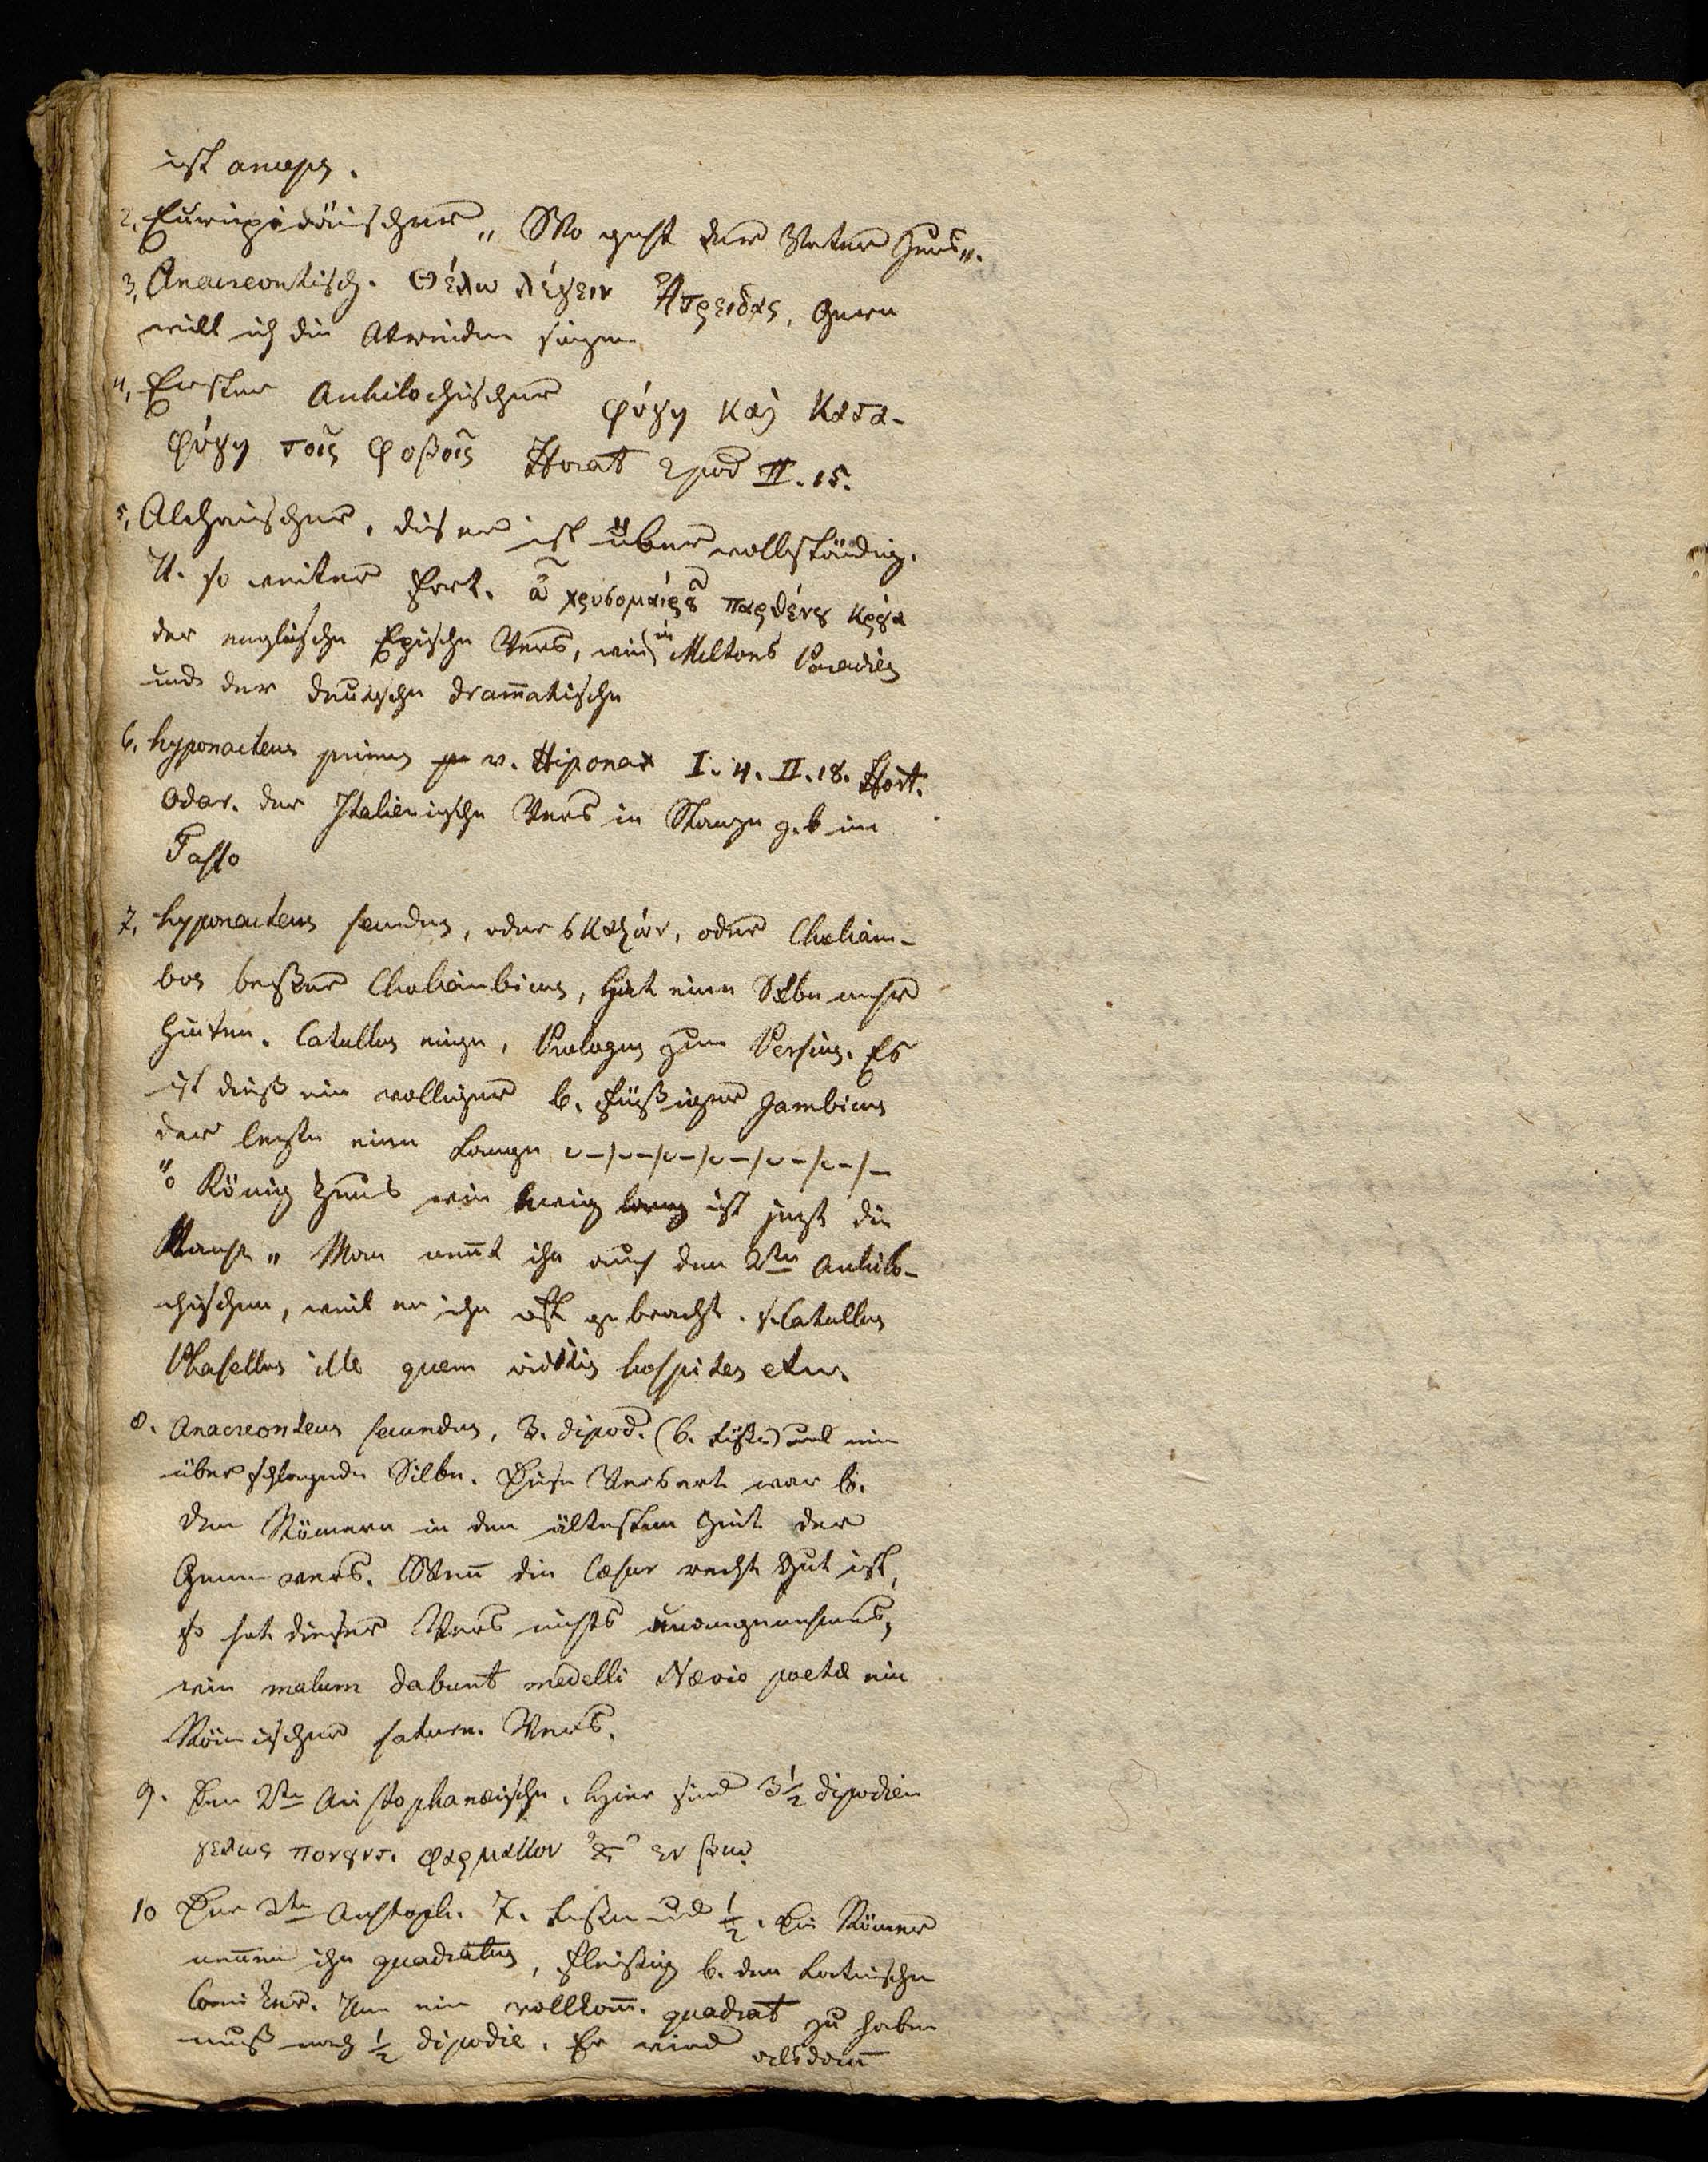 ist anceps.
2, Euripidäischer „ Wo geht der Vater Zeus „.
3, Anacreontisch. Θέλω λέγειν Ἀτρειδας, Gern
will ich die Atreiden singen
4, Erster Archilochischer φύγη καὶ κατα-
φύγη τοῖς φοβοῖς Horat Epod II. 15.
5, Alcäischer, dieser ist übervollständig.
U. so weiter fort. ὦ χρυσομαίρȣ παρθένȣ
der englische Epische Vers, wie in Miltons Paradies
und der deutsche dramatische
6, hyponacteus primus v. Hiponax I. 4. II. 18. Hort.
Odar. der Italienische Vers in Stanzen z. b im
Tasso
7, hyponacteus secundus, oder σκαζων, oder Choliam-
bos besser Choliambicus, hat eine Silbe mehr
hinten. Catullus einige, Prologus zum Persius. Es
ist dieß ein volliger 6. füßiger Jambicus
der letzte eine Lange ᴗ–/ᴗ–/ᴗ–/ᴗ–/ᴗ–/ᴗ–/–
„o König Zeus wie ewig lang ist jezt die
Nacht „ Man nen̄t ihn auch den 2ten Archilo-
chischen, weil er ihn oft gebracht. s. Catullus
Phasellus ille quem vidītis hospites etc.
8. Anacreonteus secundus, 3. dipod. (6. Füße) und eine
überschlagende Silbe. Diese Versart war b.
den Römern in den ältesten Zeit der
Gemeinvers. Wen̄ die Cæsur recht gut ist,
so hat dieser Vers nichts unangenehmes,
wie malum dabunt medelli Nævio poetæ ein
Römischer saturn. Vers.
9. Den 2ten Aristophanæische. Hier sind 3½ dipodien
γελως πονηρτ. φαρμακον
10 Der 2te Aristoph. 7. Füßen und ½. Die Römer
nen̄en ihn quadratus, fleißig b. den Lateinischen
Comiker. Um ein vollkom̄. quadrat zu haben
muß noch ½ dipodie. Er wird alsdan̄